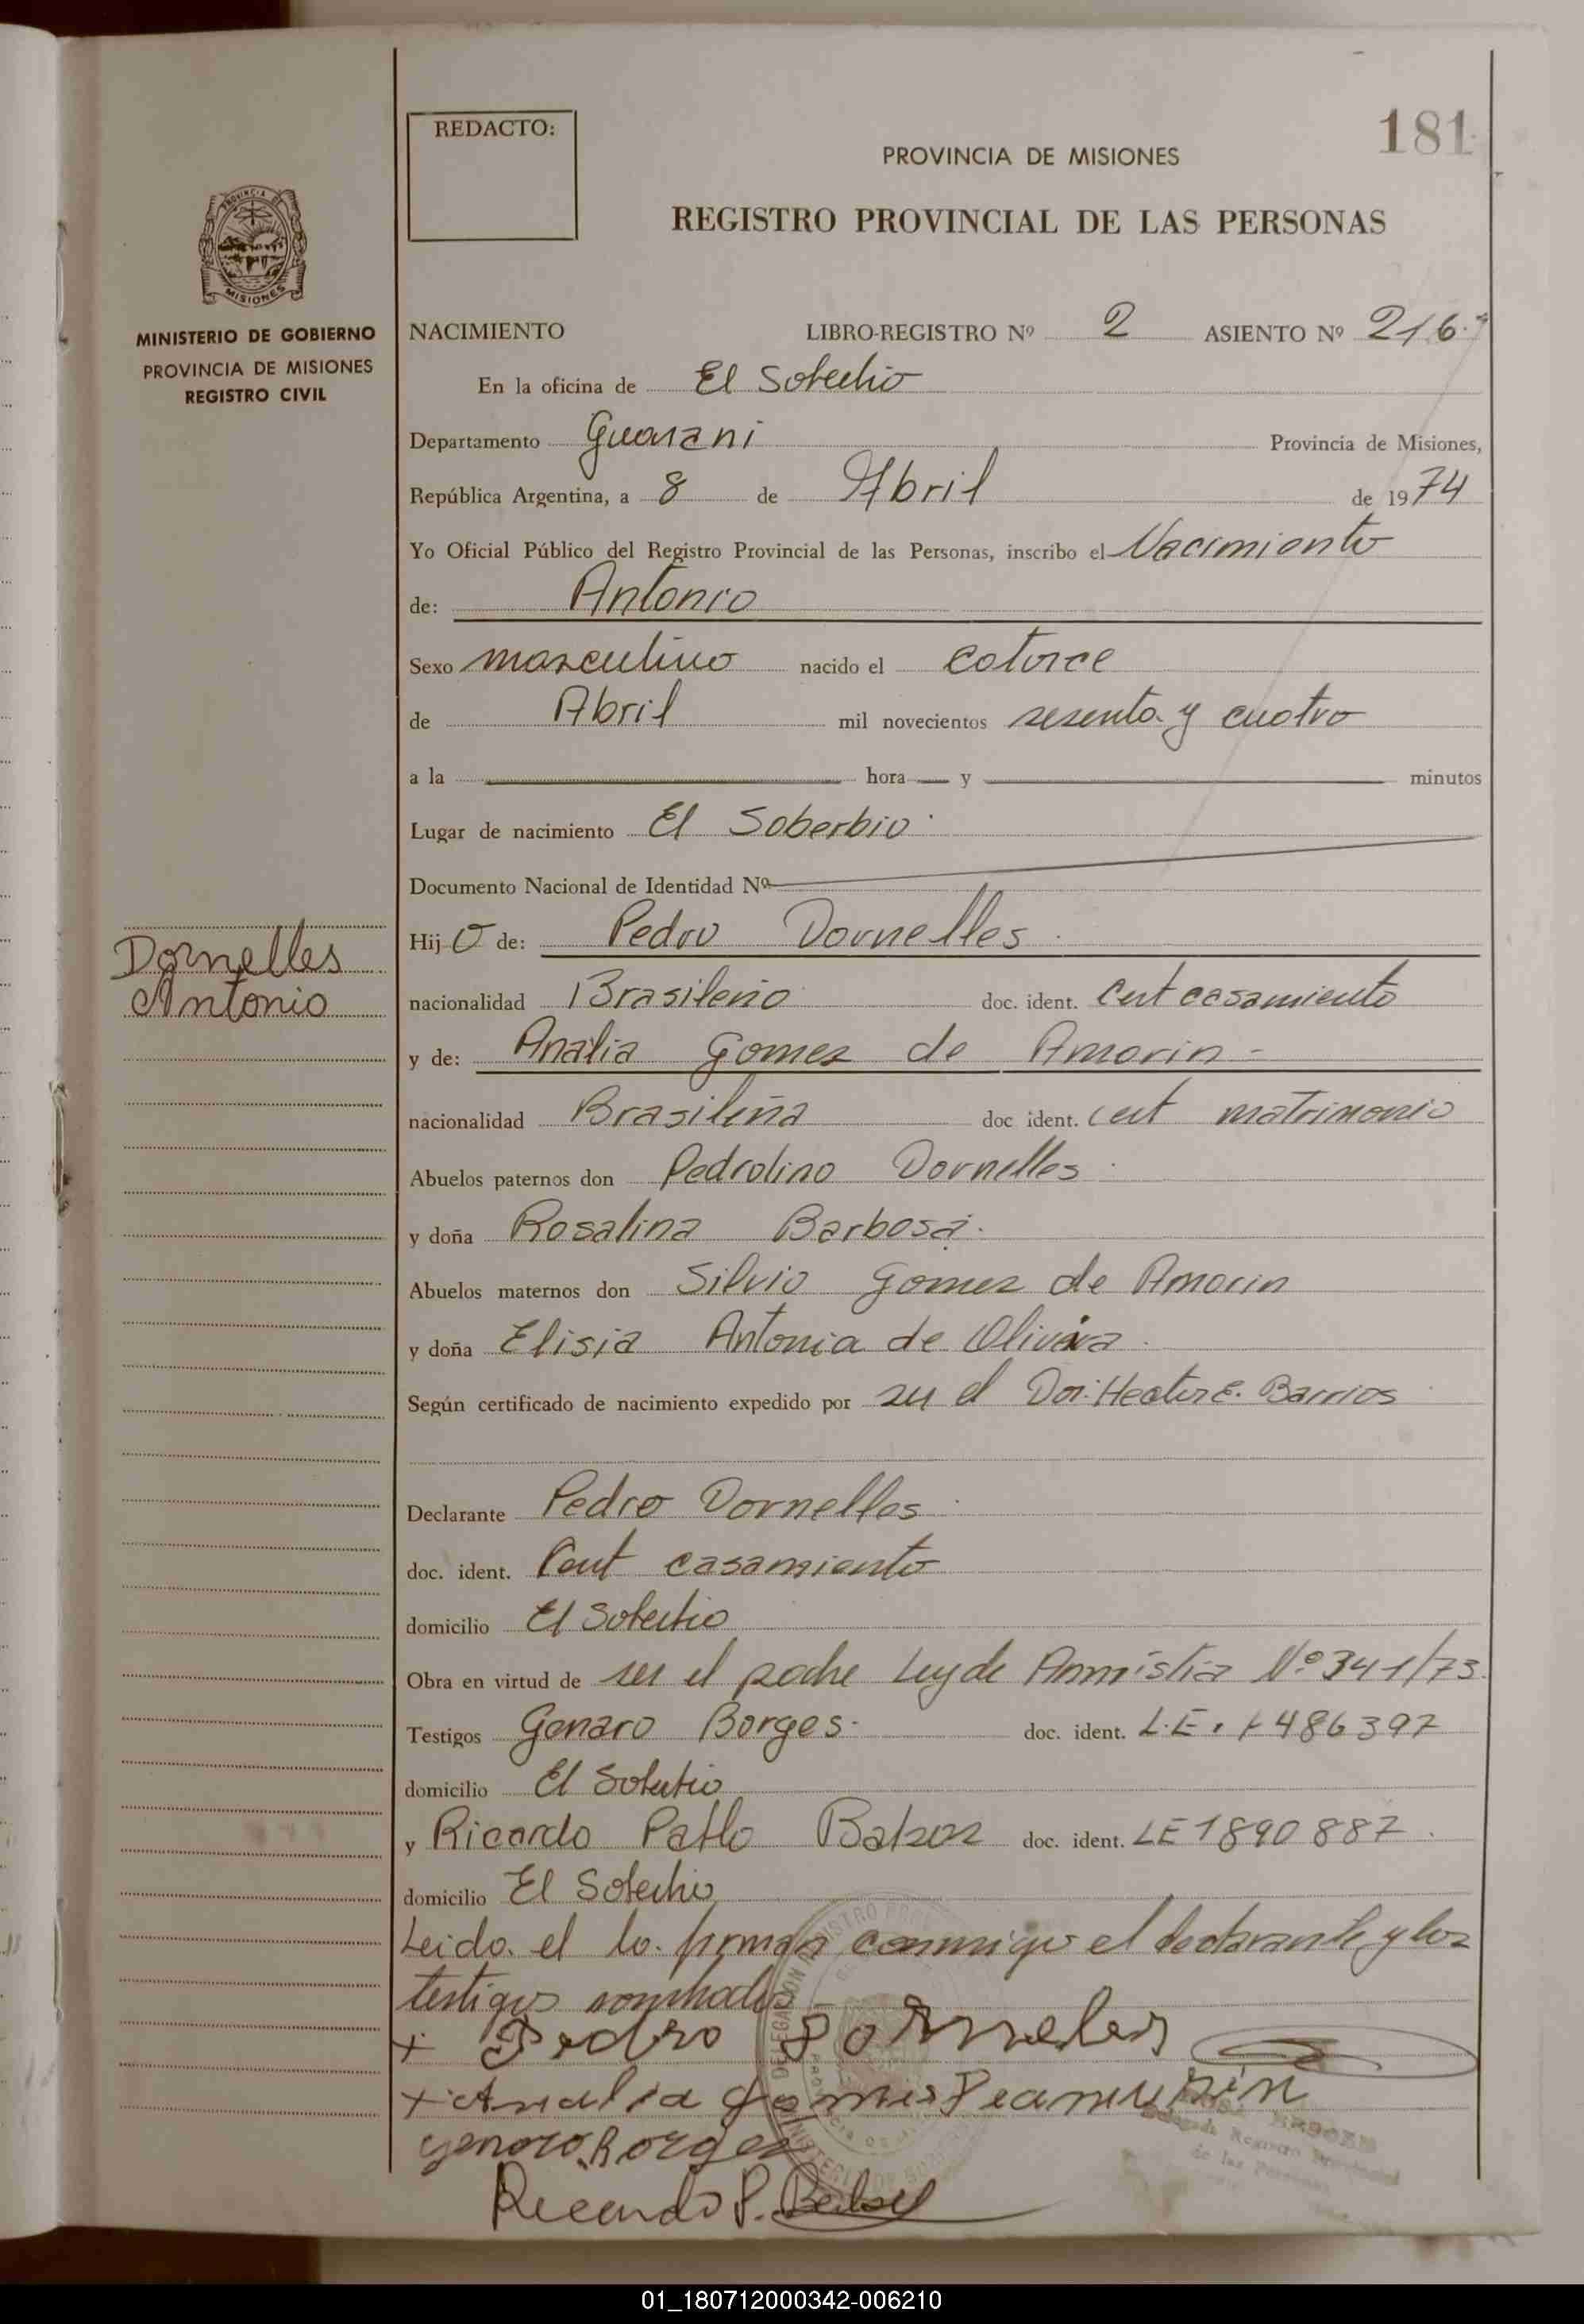 181
REDACTO:
PROVINCIA DE MISIONES
REGISTRO PROVINCIAL DE LAS PERSONAS
MISIONES
MINISTERIO DE GOBIERNO
PROVINCIA DE MISIONES
REGISTRO CIVIL
NACIMIENTO LIBRO-REGISTRO Nº 2 ASIENTO Nº 216
En la oficina de El Soberbio
Departamento Guarani Provincia de Misiones,
República Argentina, a 8 de Abril de 1974
Yo Oficial Público del Registro Provincial de las Personas, inscribo el Nacimiento
de: Antonio
Sexo masculino nacido el catorce
de Abril mil novecientos sesenta y cuatro
a la hora y minutos
Lugar de nacimiento El Soberbio
Documento Nacional de Identidad Nº
Dornelles
Antonio
Hijo de: Pedro Dornelles
nacionalidad Brasileño doc. ident. Cert casamiento
y de: Analia Gomez de Amorin -
nacionalidad Brasileña doc ident. cert matrimonio
Abuelos paternos don Pedrolino Dornelles
y doña Rosalina Barbosa.
Abuelos maternos don Silvio Gomez de Amorin
y doña Elisia Antonia de Olivera
Según certificado de nacimiento expedido por el Dor. Hector E. Barrios
Declarante Pedro Dornelles
doc. ident. Cert casamiento
domicilio El Soberbio
Obra en virtud de ser el padre Ley de Amnistia Nº 341/73.
Testigos Genaro Borges doc. ident. L.E. 486397
domicilio El Soberbio
y Ricardo Pablo doc. ident. LE 1890887.
domicilio El Soberbio
Leido el lo firman conmigo el declarante y los
testigos nombrados
+ Pedro Dornelles
+ Analia
Genaro Borges
Ricardo P.
Delegado Registro Provincial
de las Personas
01_180712000342-006210